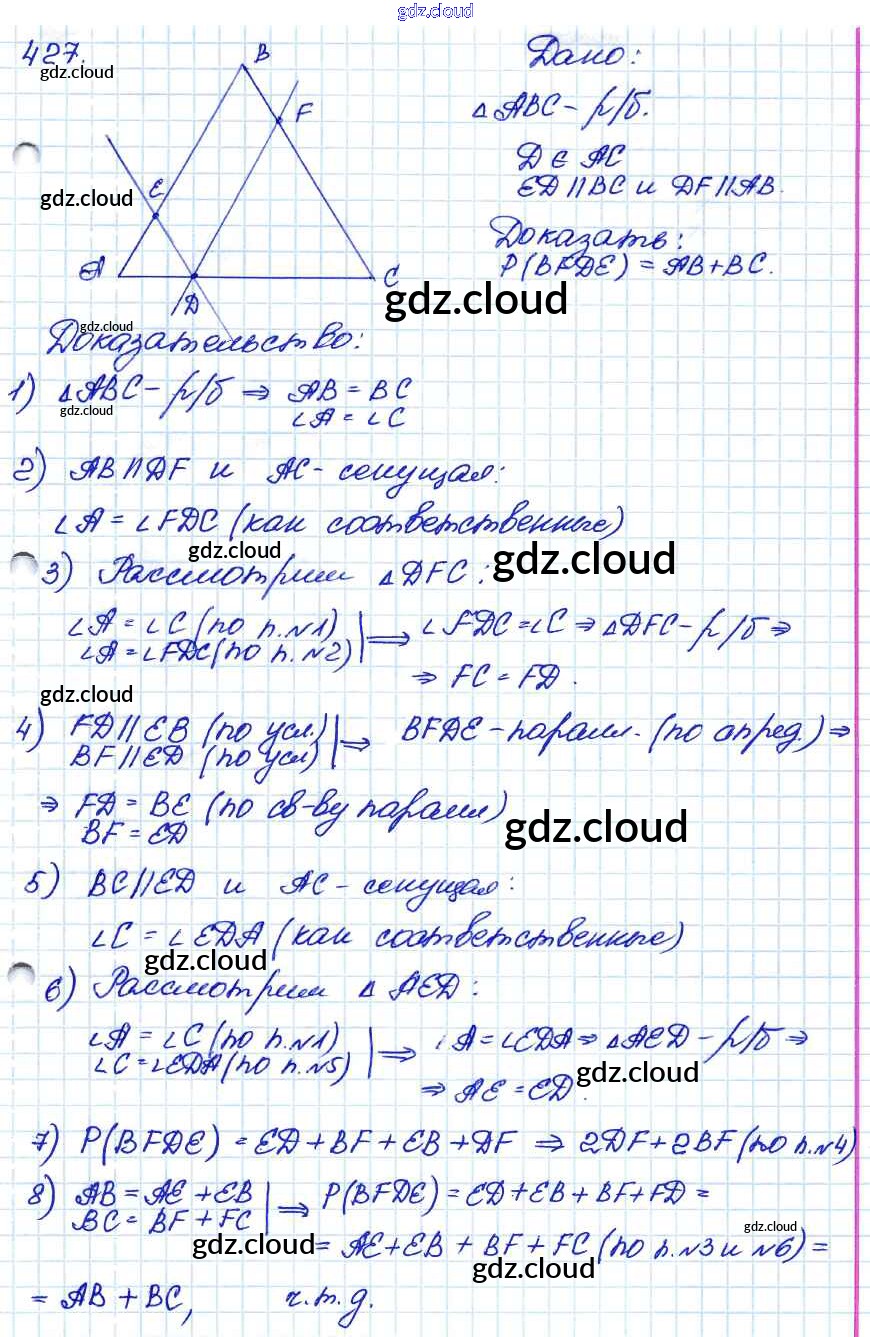 gdz.cloud
427.
gdz.cloud
B
F
E
gdz.cloud
A
D
C
gdz.cloud
Дано:
△ABC - р/б.
D ∈ AC
ED || BC и DF || AB.
Доказать:
P(BFDE) = AB + BC.
gdz.cloud
Доказательство:
1) △ABC - р/б ⇒ AB = BC
∠A = ∠C
gdz.cloud
2) AB || DF и AC - секущая:
∠A = ∠FDC (как соответственные)
gdz.cloud
gdz.cloud
3) Рассмотрим △DFC:
∠A = ∠C (по п.№1)
∠A = ∠FDC (по п.№2) | ⇒ ∠FDC = ∠C ⇒ △DFC - р/б ⇒
⇒ FC = FD.
gdz.cloud
4) FD || EB (по усл.)
BF || ED (по усл) | ⇒ BFDE - паралл. (по опред.) ⇒
⇒ FD = BE (по св-ву паралл)
BF = ED
gdz.cloud
5) BC || ED и AC - секущая:
∠C = ∠EDA (как соответственные)
gdz.cloud
6) Рассмотрим △AED:
∠A = ∠C (по п.№1)
∠C = ∠EDA (по п.№5) | ⇒ ∠A = ∠EDA ⇒ △AED - р/б ⇒
⇒ AE = ED.
gdz.cloud
7) P(BFDE) = ED + BF + EB + DF ⇒ 2DF + 2BF (по п.№4)
8) AB = AE + EB
BC = BF + FC | ⇒ P(BFDE) = ED + EB + BF + FD =
gdz.cloud
gdz.cloud
= AE + EB + BF + FC (по п.№3 и №6) =
gdz.cloud
= AB + BC, ч.т.д.